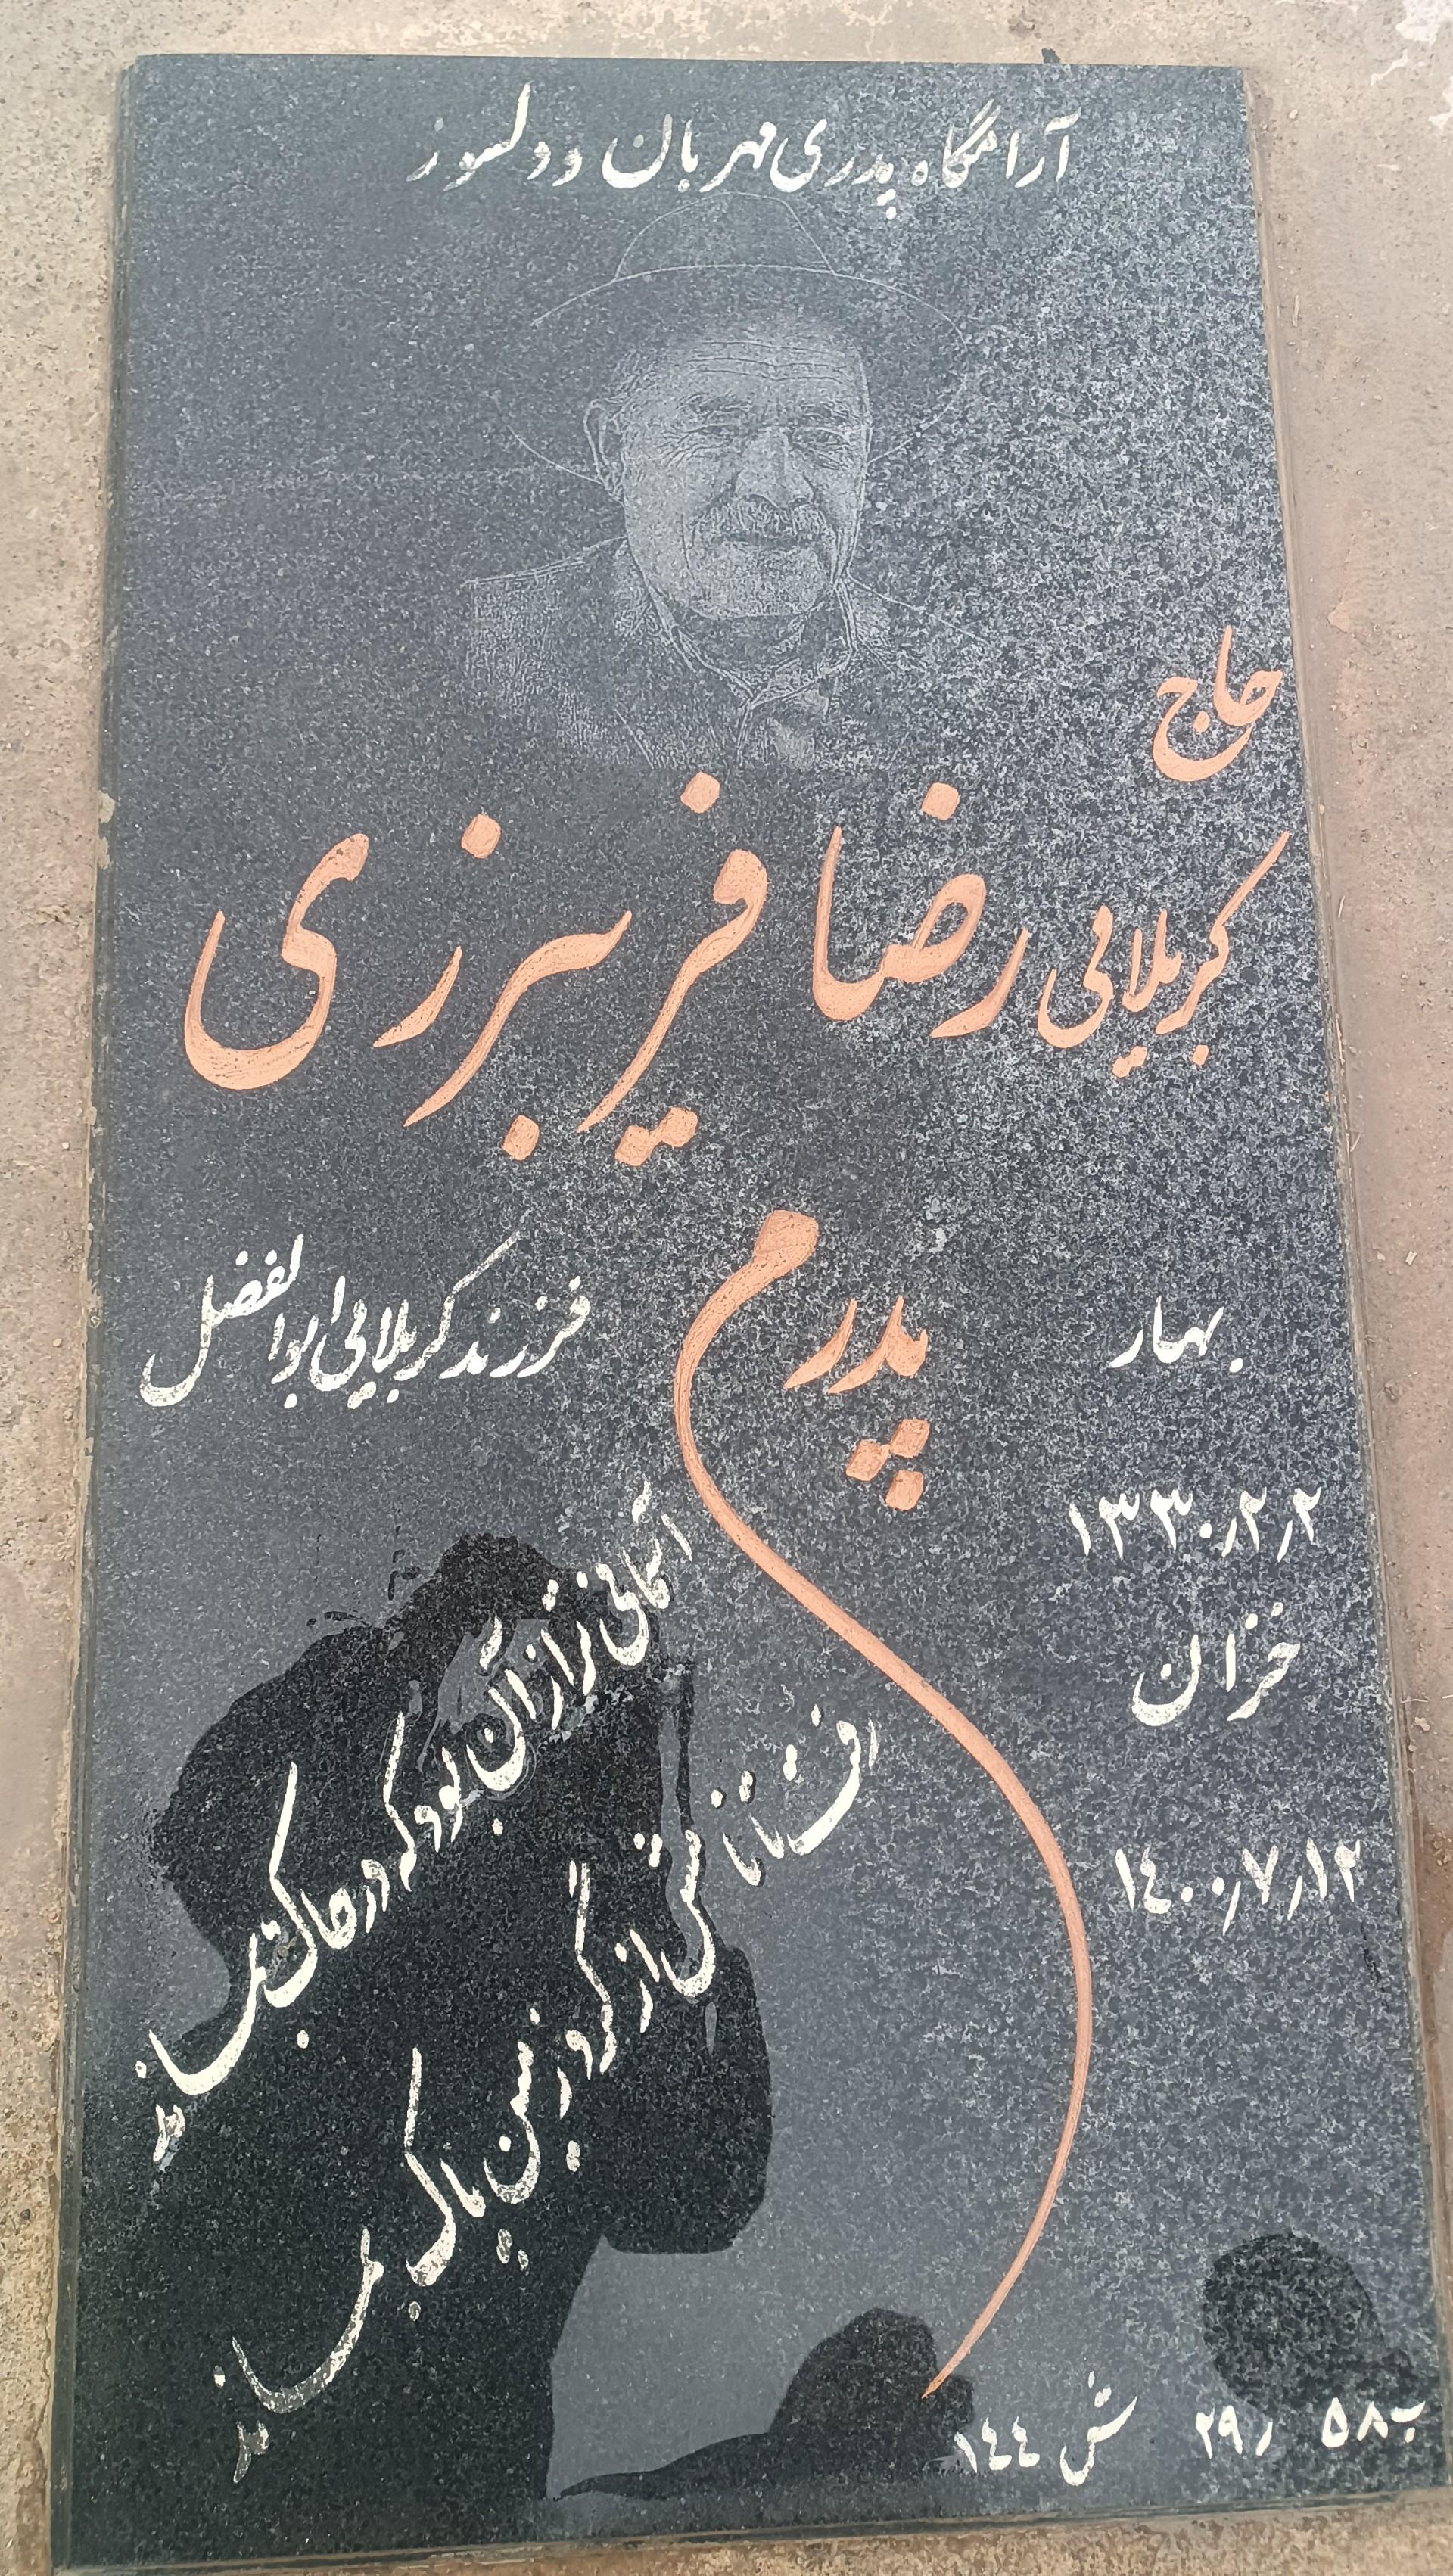 آرامگاه پدری مهربان و دلسوز
حاج
کربلایی رضا فریبرزی
پدرم
فرزند کربلایی ابوالفضل
بهار
۱۳۳۰٫۲٫۲
خزان
۱۴۰۰٫۷٫۱۲
آسمانی تر از آن بود که در خاک بماند
افق تابشی از گرد زمین پاک بماند
ب ۵۸ ر ۲۹ ش ۱۴۴